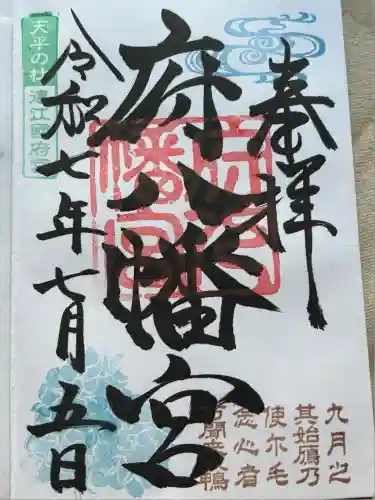 奉拝
府八幡宮
令和七年七月五日
天平の杜 遠江国府
府八
幡宮
九月之
其始鴈乃
使尓毛
念心者
聞来 鴨